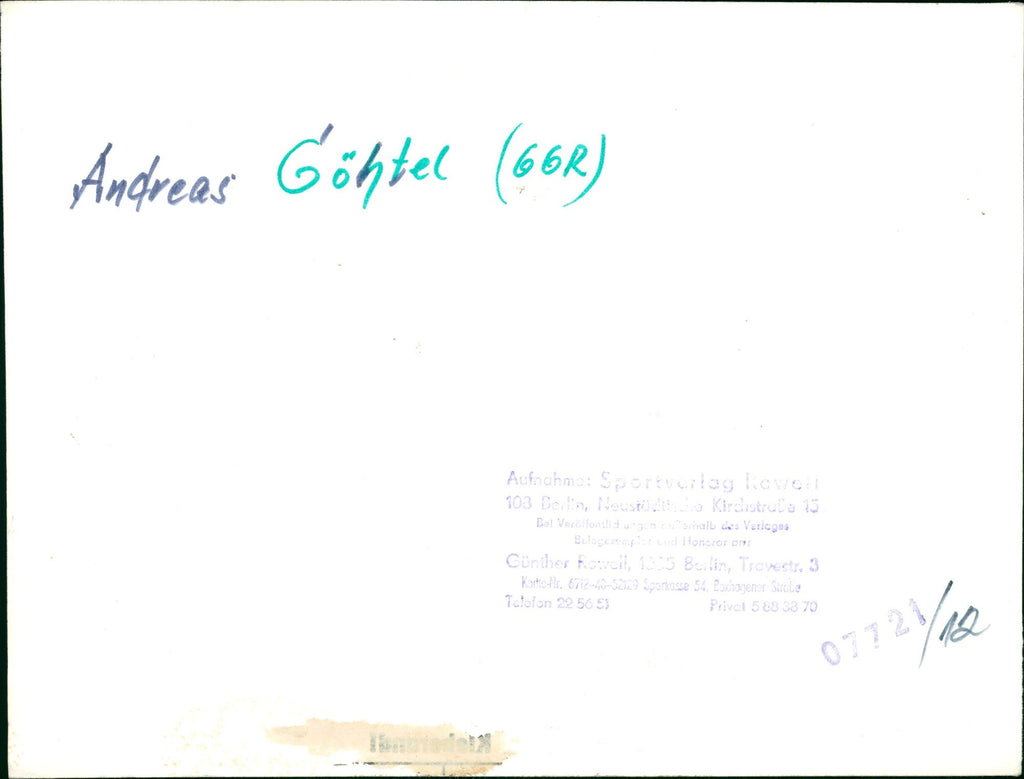 Andreas Göhtel (GGR)
Aufnahme: Sportverlag Rowell
108 Berlin, Neustädtische Kirchstraße 15
Bei Veröffentlichungen außerhalb des Verlages
Belegexemplar und Honorar an:
Günther Rowell, Berlin, Travestr. 3
Konto-Nr. Sparkasse 54, Boxhagener Straße
Telefon 22 56 51 Privat 5 88 38 70
07721/12